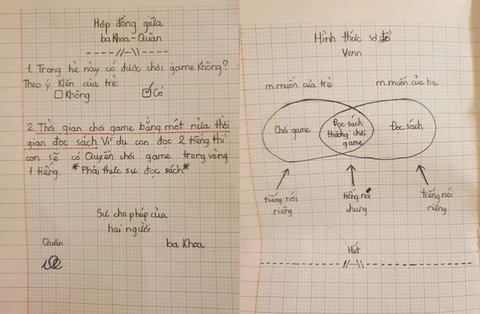 Hợp đồng giữa
ba Khoa-Quân
1. Trong hè này có được chơi game không?
Theo ý kiến của trẻ:
Không
Có
2. Thời gian chơi game bằng một nửa thời
gian đọc sách. Ví dụ con đọc 2 tiếng thì
con sẽ có Quyền chơi game trong vòng
1 tiếng. *Phải thực sự đọc sách*
Sự cho phép của
hai người
Quân
ba Khoa
Hình thức sơ đồ
Venn
m.muốn của trẻ
m.muốn của ba
Chơi game
Đọc sách
thưởng chơi
game
Đọc sách
tiếng nói
riêng
tiếng nói
chung
tiếng nói
riêng
Hết